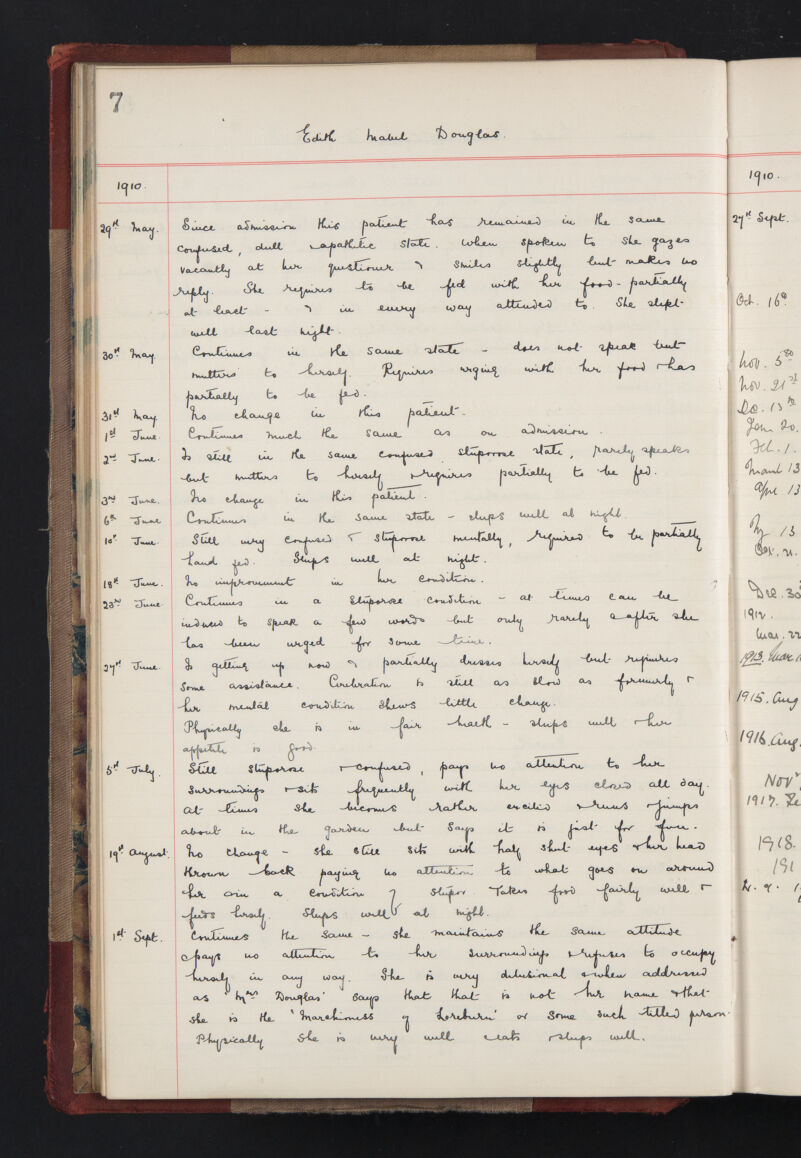 7
Edith Mabel Douglas.
1910.
29th May. Since admission this patient has remained in the same
confused, dull & apathetic state. When spoken to she gazes
vacantly at her questioner & smiles slightly but makes no
reply. She requires to be fed with her food - partially
at least - & in every way attended to. She slept
well last night.
30th May Continues in the same state - does not speak but
mutters to herself. Requires urging with her food & has
partially to be fed.
31st May No change in this patient.
1st June. Continues much the same as on admission.
2nd June. Is still in the same confused stuporose state, rarely speaks
but mutters to herself & requires partially to be fed.
3rd June. No change in this patient.
6th June Continues in the same state - sleeps well at night.
10th June. Still very confused & stuporose mentally, required to be partially
hand fed. Sleeps well at night.
18th June. No improvement in her condition.
23rd June Continues in a stuporose condition - at times can be
induced to speak a few words but only rarely & after she
has been urged for some time.
27th June. Is getting up now & partially dresses herself but requires
some assistance. Cerebration is still as slow as formerly &
her mental condition shews little change.
Physically she is in fair health - sleeps well & her
appetite is good.
5th July. Still stuporose & confused, pays no attention to her
surroundings & sits frequently with her eyes closed all day.
At times she becomes rather excited & runs & jumps
about in the garden but says it is just for fun.
19th August. No change - she still sits with half shut eyes & her head
thrown back paying no attention to what goes on around
her & in a condition of stupor. Takes food fairly well &
feeds herself. Sleeps well at night.
1st Sept. Continues the same - she maintains the same attitude
& pays no attention to her surroundings & refuses to occupy
herself in any way. She is very delusional & when addressed
as 'Mrs Douglas' says that that is not her name & that
she is the 'Marchioness of Loreburn' or some such titled person.
Physically she is very well & eats & sleeps well.
1910.
27th Sept.
Oct. 16th
Nov. 5th
Nov. 21st
De. 13th
Jan. 20.
Feb. 1.
March 13
Apr 13
13
Dec. 30
1912.
Mar. 22
1913. Mar
1915. Aug
1916. Aug.
Nov
1917.
1918.
191